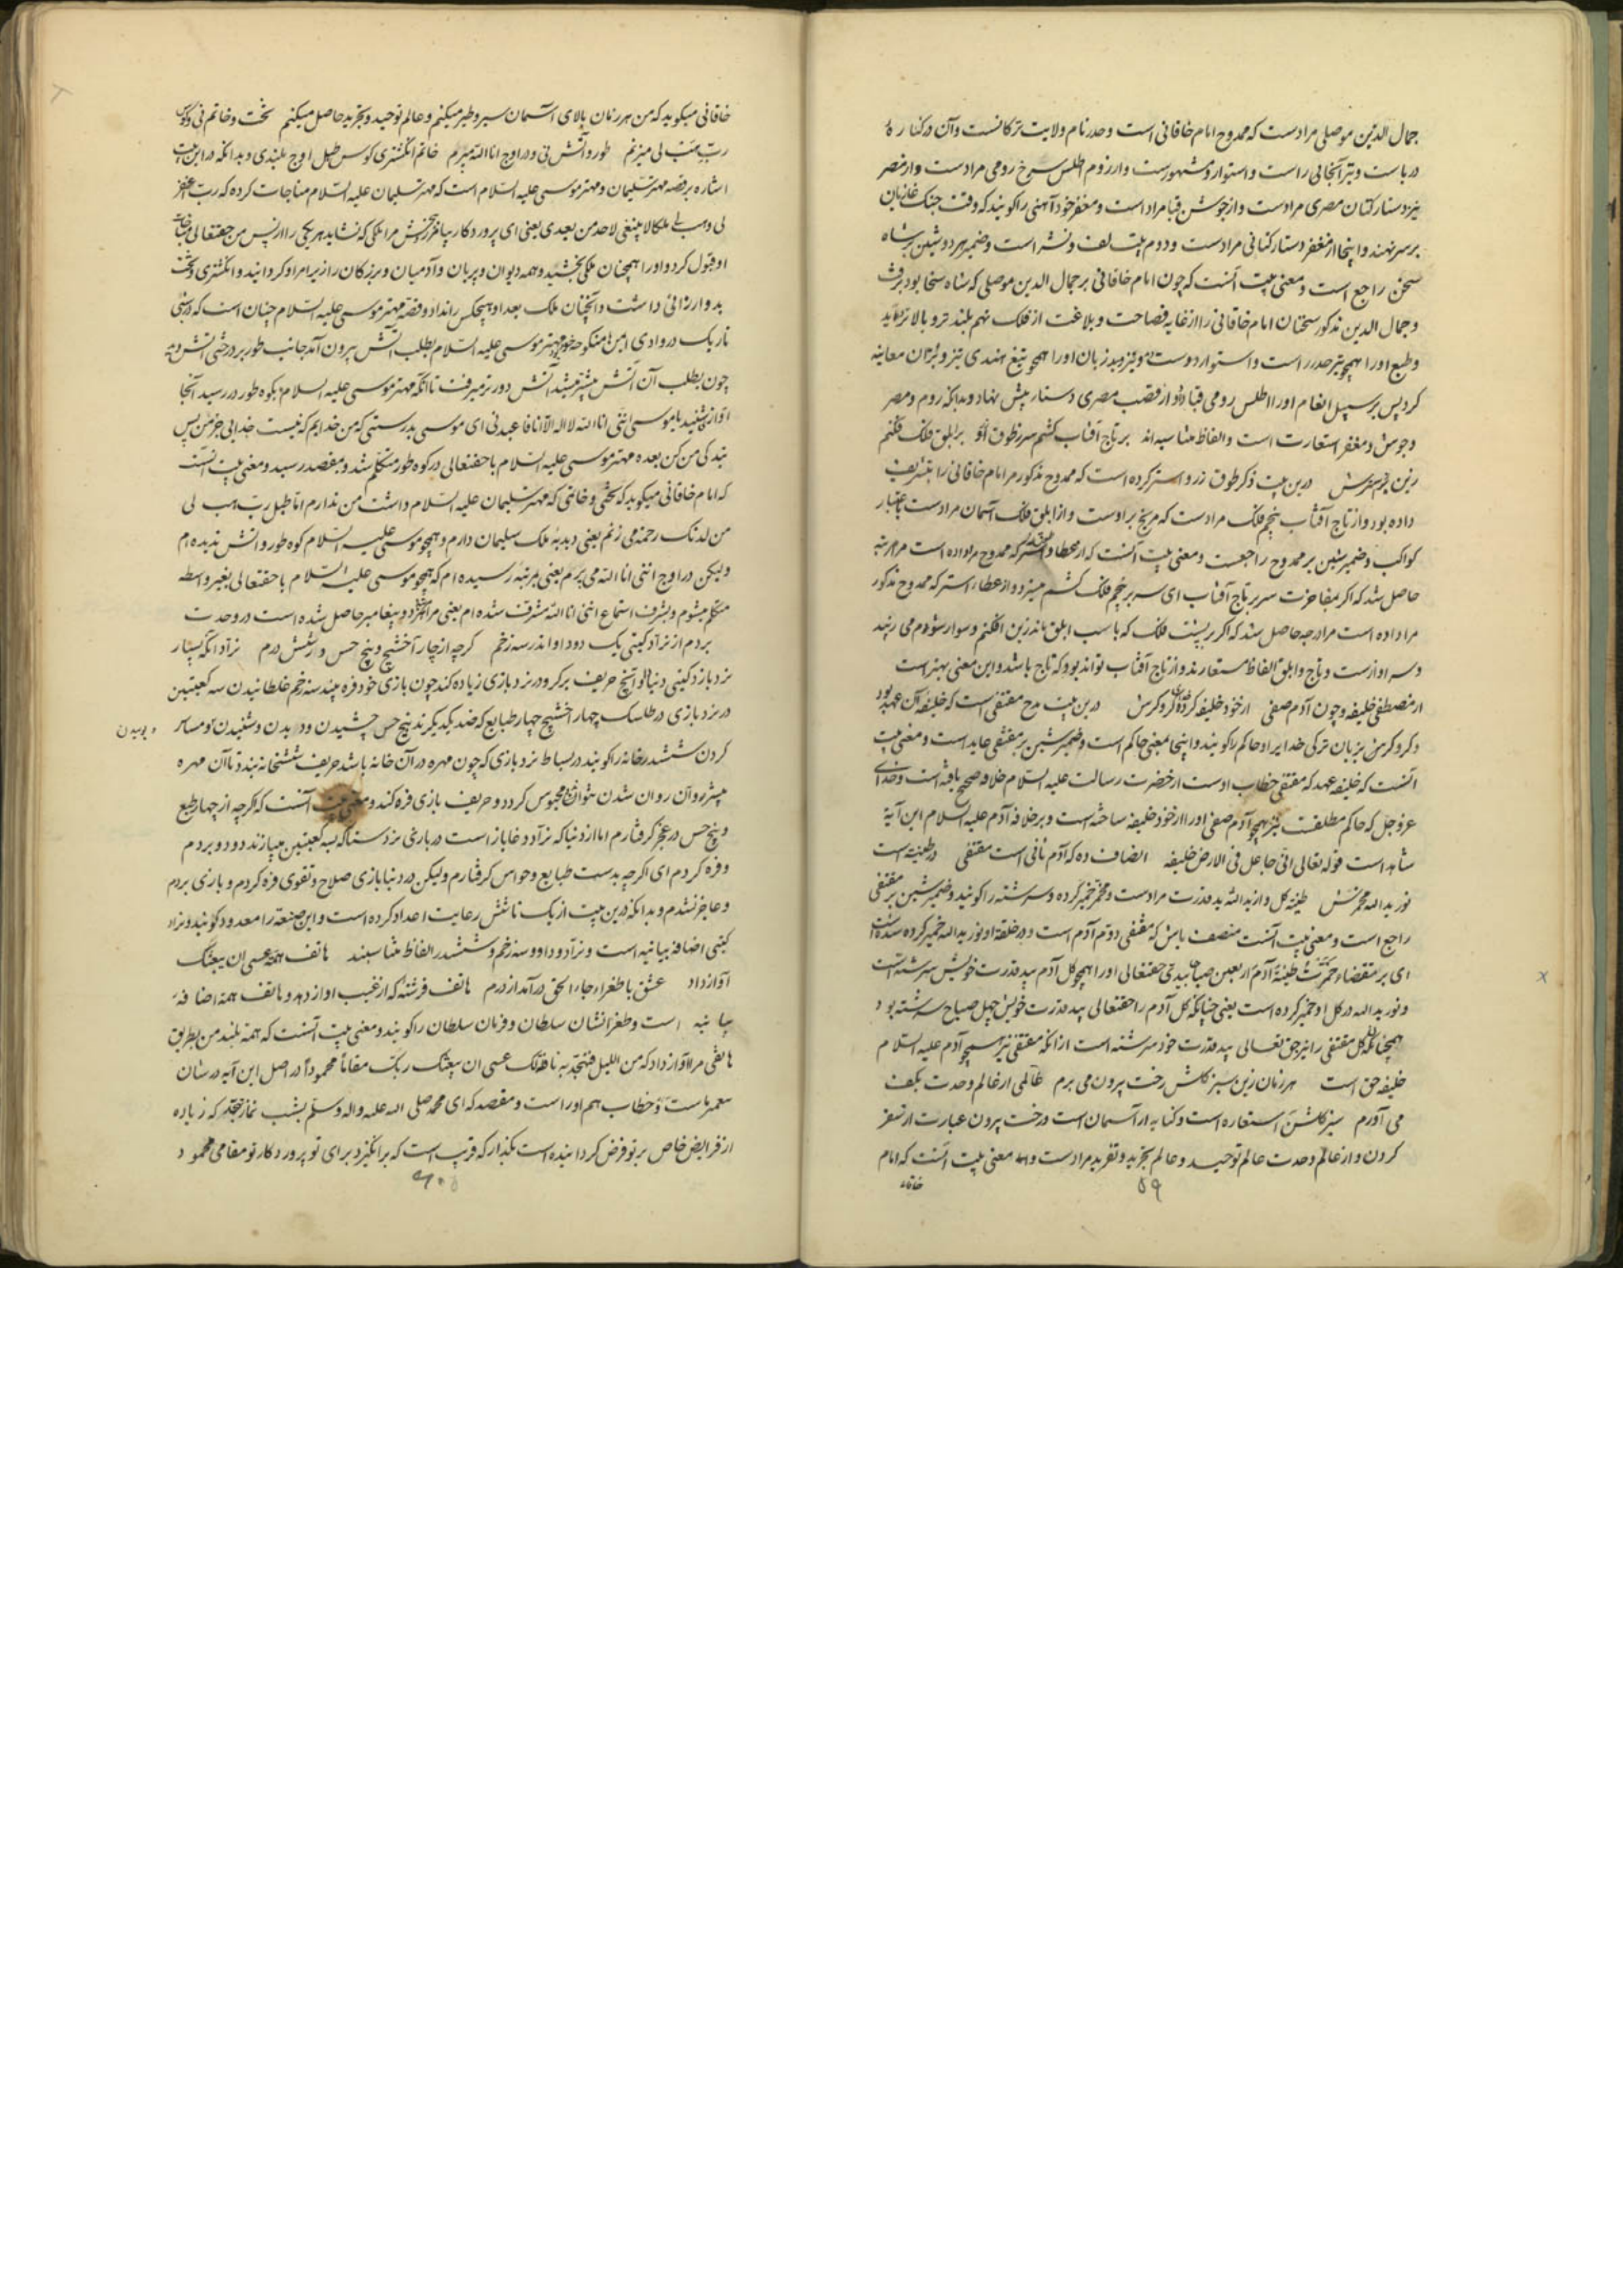 جمال الدین موصلی مرادست که ممدوح امام خاقانی است و حدر نام ولایت ترکانست و آن در کناره
دریاست و تیر آنجائی راست و استوار و مشهورست و از روم اطلس سرخ رومی مرادست و از مصر
نیز دستار کتان مصری مرادست و از جوشن قبا مراد است و مغفر خود آهنی را گویند که وقت جنک غازیان
بر سر نهند و اینجا از مغفر دستار کتانی مرادست و دوم بیت لف و نشر است و ضمیر هر دو شین بر شاه
سخن راجع است و معنی بیت آنست که چون امام خاقانی بر جمال الدین موصلی که شاه سخا بود برفت
و جمال الدین مذکور سخنان امام خاقانی را از غایه فصاحت و بلاغت از فلک نهم بلندتر و بالاتر دید
و طبع او را همچو تیر حدر راست و استوار دوست و نیز دید زبان او را همچو تیغ هندی تیز و بران معاینه
کرد پس بر سبیل انعام او را اطلس رومی قبا داد و از قصب مصری دستار پیش نهاد و بدانکه روم و مصر
و جوشن و مغفر استعارت است و الفاظ مناسبه اند بر تاج آفتاب کشم سر بطوق او بر ابلق فلک فکنم
زین باسترش درین بیت ذکر طوق زر و استر کرده است که ممدوح مذکور مر امام خاقانی را بتشریف
داده بود و از تاج آفتاب پنجم فلک مرادست که مریخ بر اوست و از ابلق فلک آسمان مرادست باعتبار
کواکب و ضمیر شین بر ممدوح راجعست و معنی بیت آنست که از عطاء استر که ممدوح مرا داده است مرا مرتبه
حاصل شد که اگر بمفاخرت سر بر تاج آفتاب ای سر بر پنجم فلک کشم میسزد و از عطاء استر که ممدوح مذکور
مرا داده است مرا درجه حاصل شد که اگر بر پشت فلک که باسب ابلق ماند زین افکنم و سوار شوم می رسد
و سزاوارست و تاج و ابلق الفاظ مستعارند و از تاج آفتاب تواند بود که تاج باشد و این معنی بهتر است
از مصطفی خلیفه و چون آدم صفی از خود خلیفه کرده کروکرش درین بیت مدح مقتفی است که خلیفه آن عهد بود
و کروکر من بزبان ترکی خدای را و حاکم را گویند و اینجا بمعنی حاکم است و ضمیر شین بر مقتفی عاید است و معنی بیت
آنست که خلیفه عهد که مقتفی خطاب اوست از حضرت رسالت علیه السلام خلافه صحیح یافته است و خدای
عز و جل که حاکم مطلقست نیز همچو آدم صفی او را از خود خلیفه ساخته است و بر خلافه آدم علیه السلام این آیة
شاهد است قوله تعالی انی جاعل فی الارض خلیفه انصاف ده که آدم ثانی است مقتفی در طینت است
نور یدالله مخمرش طینة گل و از یدالله ید قدرت مرادست و مخمر خمیر کرده و سرشته را گویند و ضمیر شین بر مقتفی
راجع است و معنی بیت آنست منصف باش که مقتفی دوم آدم است و در خلقة او نور یدالله خمیر کرده شده است
ای بر مقتضاء خمرت طینة آدم اربعین صباحا بیدی حقتعالی او را همچو گل آدم بید قدرت خویش سرشته است
و نور یدالله در گل او خمیر کرده است یعنی چنانکه گل آدم را حقتعالی بید قدرت خویش چهل صباح سرشته بود
همچنانکه گل مقتفی را نیز حق تعالی بید قدرت خود سرشته است از آنکه مقتفی نیز همچو آدم علیه السلام
خلیفه حق است هر زمان زین سبز گلشن رخت بیرون می برم عالمی از عالم وحدت بکف
می آورم سبز گلشن استعاره است و کنایه از آسمان است و رخت بیرون عبارت از سفر
کردن و از عالم وحدت عالم توحید و عالم تجرید و تفرید مرادست و معنی بیت آنست که امام
خاقانی
۵۹
خاقانی میگوید که من هر زمان بالای آسمان سیر و طیر میکنم و عالم توحید و تجرید حاصل میکنم تخت و خاتم نی و کوس
رب هب لی میزنم طور و آتش نی و در اوج انا الله میپرم خاتم انگشتری کوس طبل اوج بلندی و بدانکه در این بیت
اشاره بر قصه مهتر سلیمان و مهتر موسی علیه السلام است که مهتر سلیمان علیه السلام مناجات کرده که رب اغفر
لی و هب لی ملکا لا ینبغی لاحد من بعدی یعنی ای پروردگار بیامرز و ببخش مرا ملکی که نشاید هر یکی را از پس من حقتعالی مناجات
او قبول کرد و او را همچنان ملکی بخشید و همه دیوان و پریان و آدمیان و بزرکان را زیر امر او گردانید و انگشتری و تخت
بدو ارزانی داشت و آنچنان ملک بعد او هیچکس را نداد و قصه مهتر موسی علیه السلام چنان است که در شبی
تاریک در وادی ایمن با منکوحه خود مهتر موسی علیه السلام بطلب آتش بیرون آمد جانب طور بر درختی آتش دید
چون بطلب آن آتش بیشتر میشد آتش دورتر میرفت تا آنکه مهتر موسی علیه السلام بکوه طور در رسید آنجا
آواز شنید یا موسی اننی انا الله لا اله الا انا فاعبدنی ای موسی بدرستی که من خدایم که نیست خدایی جز من پس
بندگی من کن بعده مهتر موسی علیه السلام با حقتعالی در کوه طور متکلم شد و بمقصد رسید و معنی بیت آنست
که امام خاقانی میگوید که تختی و خاتمی که مهتر سلیمان علیه السلام داشت من ندارم اما طبل رب هب لی
من لدنک رحمة می زنم یعنی دبدبه ملک سلیمان دارم و همچو موسی علیه السلام کوه طور و آتش ندیده ام
و لیکن در اوج اننی انا الله می پرم یعنی بمرتبه رسیده ام که همچو موسی علیه السلام با حقتعالی بغیر واسطه
متکلم میشوم و بشرف استماع اننی انا الله مشرف شده ام یعنی مرا مرتبه دو پیغامبر حاصل شده است در وحدت
بردم از نراد گیتی یک دو داو اندر سه زخم گرچه از چار آخشیج و پنج حس در ششدرم نراد آنکه بسیار
نرد بازد گیتی دنیا داو آنچ حریف بر گرو در نرد بازی زیاده کند چون بازی خود فره بیند سه زخم غلطانیدن سه کعبتین
در نرد بازی در طاسک چهار آخشیج چهار طبایع که ضد یکدیگرند پنج حس چشیدن و دیدن و شنیدن و مساس
و بوییدن
کردن ششدر خانه را گویند در بساط نرد بازی که چون مهره در آن خانه باشد حریف شش خانه بندد تا آن مهره
پیشتر و آن روان شدن نتواند و محبوس گردد و حریف بازی فره کند و معنی بیت آنست که گرچه از چهار طبع
و پنج حس در عجز گرفتارم اما از دنیا که نراد دغاباز است در بازی نرد ستاکه سه کعبتین میبازند دو داو بردم
و فره کردم ای اگرچه بدست طبایع و حواس گرفتارم ولیکن در دنیا بازی صلاح و تقوی فره کردم و بازی بردم
و عاجز نشدم و بدانکه درین بیت از یک تا شش رعایت اعداد کرده است و این صنعت را معدود گویند و نراد
گیتی اضافه بیانیه است و نراد و داو و سه زخم و ششدر الفاظ متناسبند هاتف همت عسی ان یبعثک
آواز داد عشق با طغراء جاء الحق درآمد از درم هاتف فرشته که از غیب آواز دهد و هاتف همت اضافه
بیانیه است و طغرا نشان سلطان و فرمان سلطان را گویند و معنی بیت آنست که همت بلند من بطریق
هاتفی مرا آواز داد که من اللیل فتهجد به نافلة لک عسی ان یبعثک ربک مقاما محمودا در اصل این آیه در شان
پیغمبر ماست و خطاب هم او راست و مقصد که ای محمد صلی الله علیه و اله و سلم بشب نماز تهجد که زیاده
از فرایض خاص بر تو فرض گردانیده است بگذار که قریب است که برانگیزد برای تو پروردگار تو مقامی محمود
۶۰